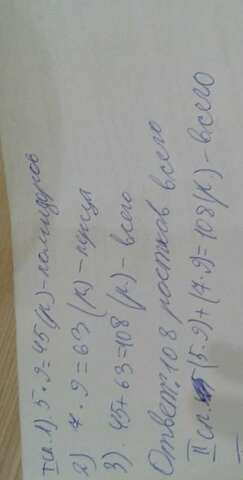 I сп. 1). 5·9=45(р)-помидоров
2) 7·9=63 (р)-перца
3). 45+63=108(р)-всего
Ответ: 108 ростков всего
II сп. (5·9)+(7·9)=108(р)-всего